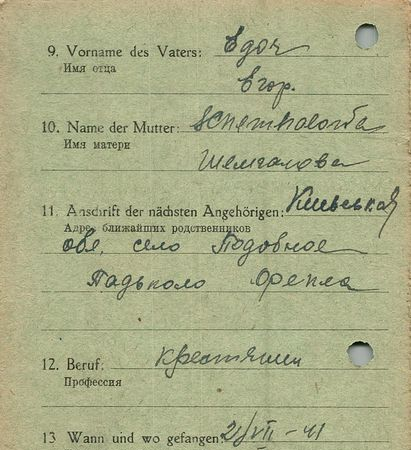 9. Vorname des Vaters:
Имя отца
Егор.
10. Name der Mutter:
Имя матери
Шемгалова
11. Anschrift der nächsten Angehörigen:
Адрес ближайших родственников
обл. село Подовное
12. Beruf: крестянин
Профессия
13 Wann und wo gefangen: 21/VII-41